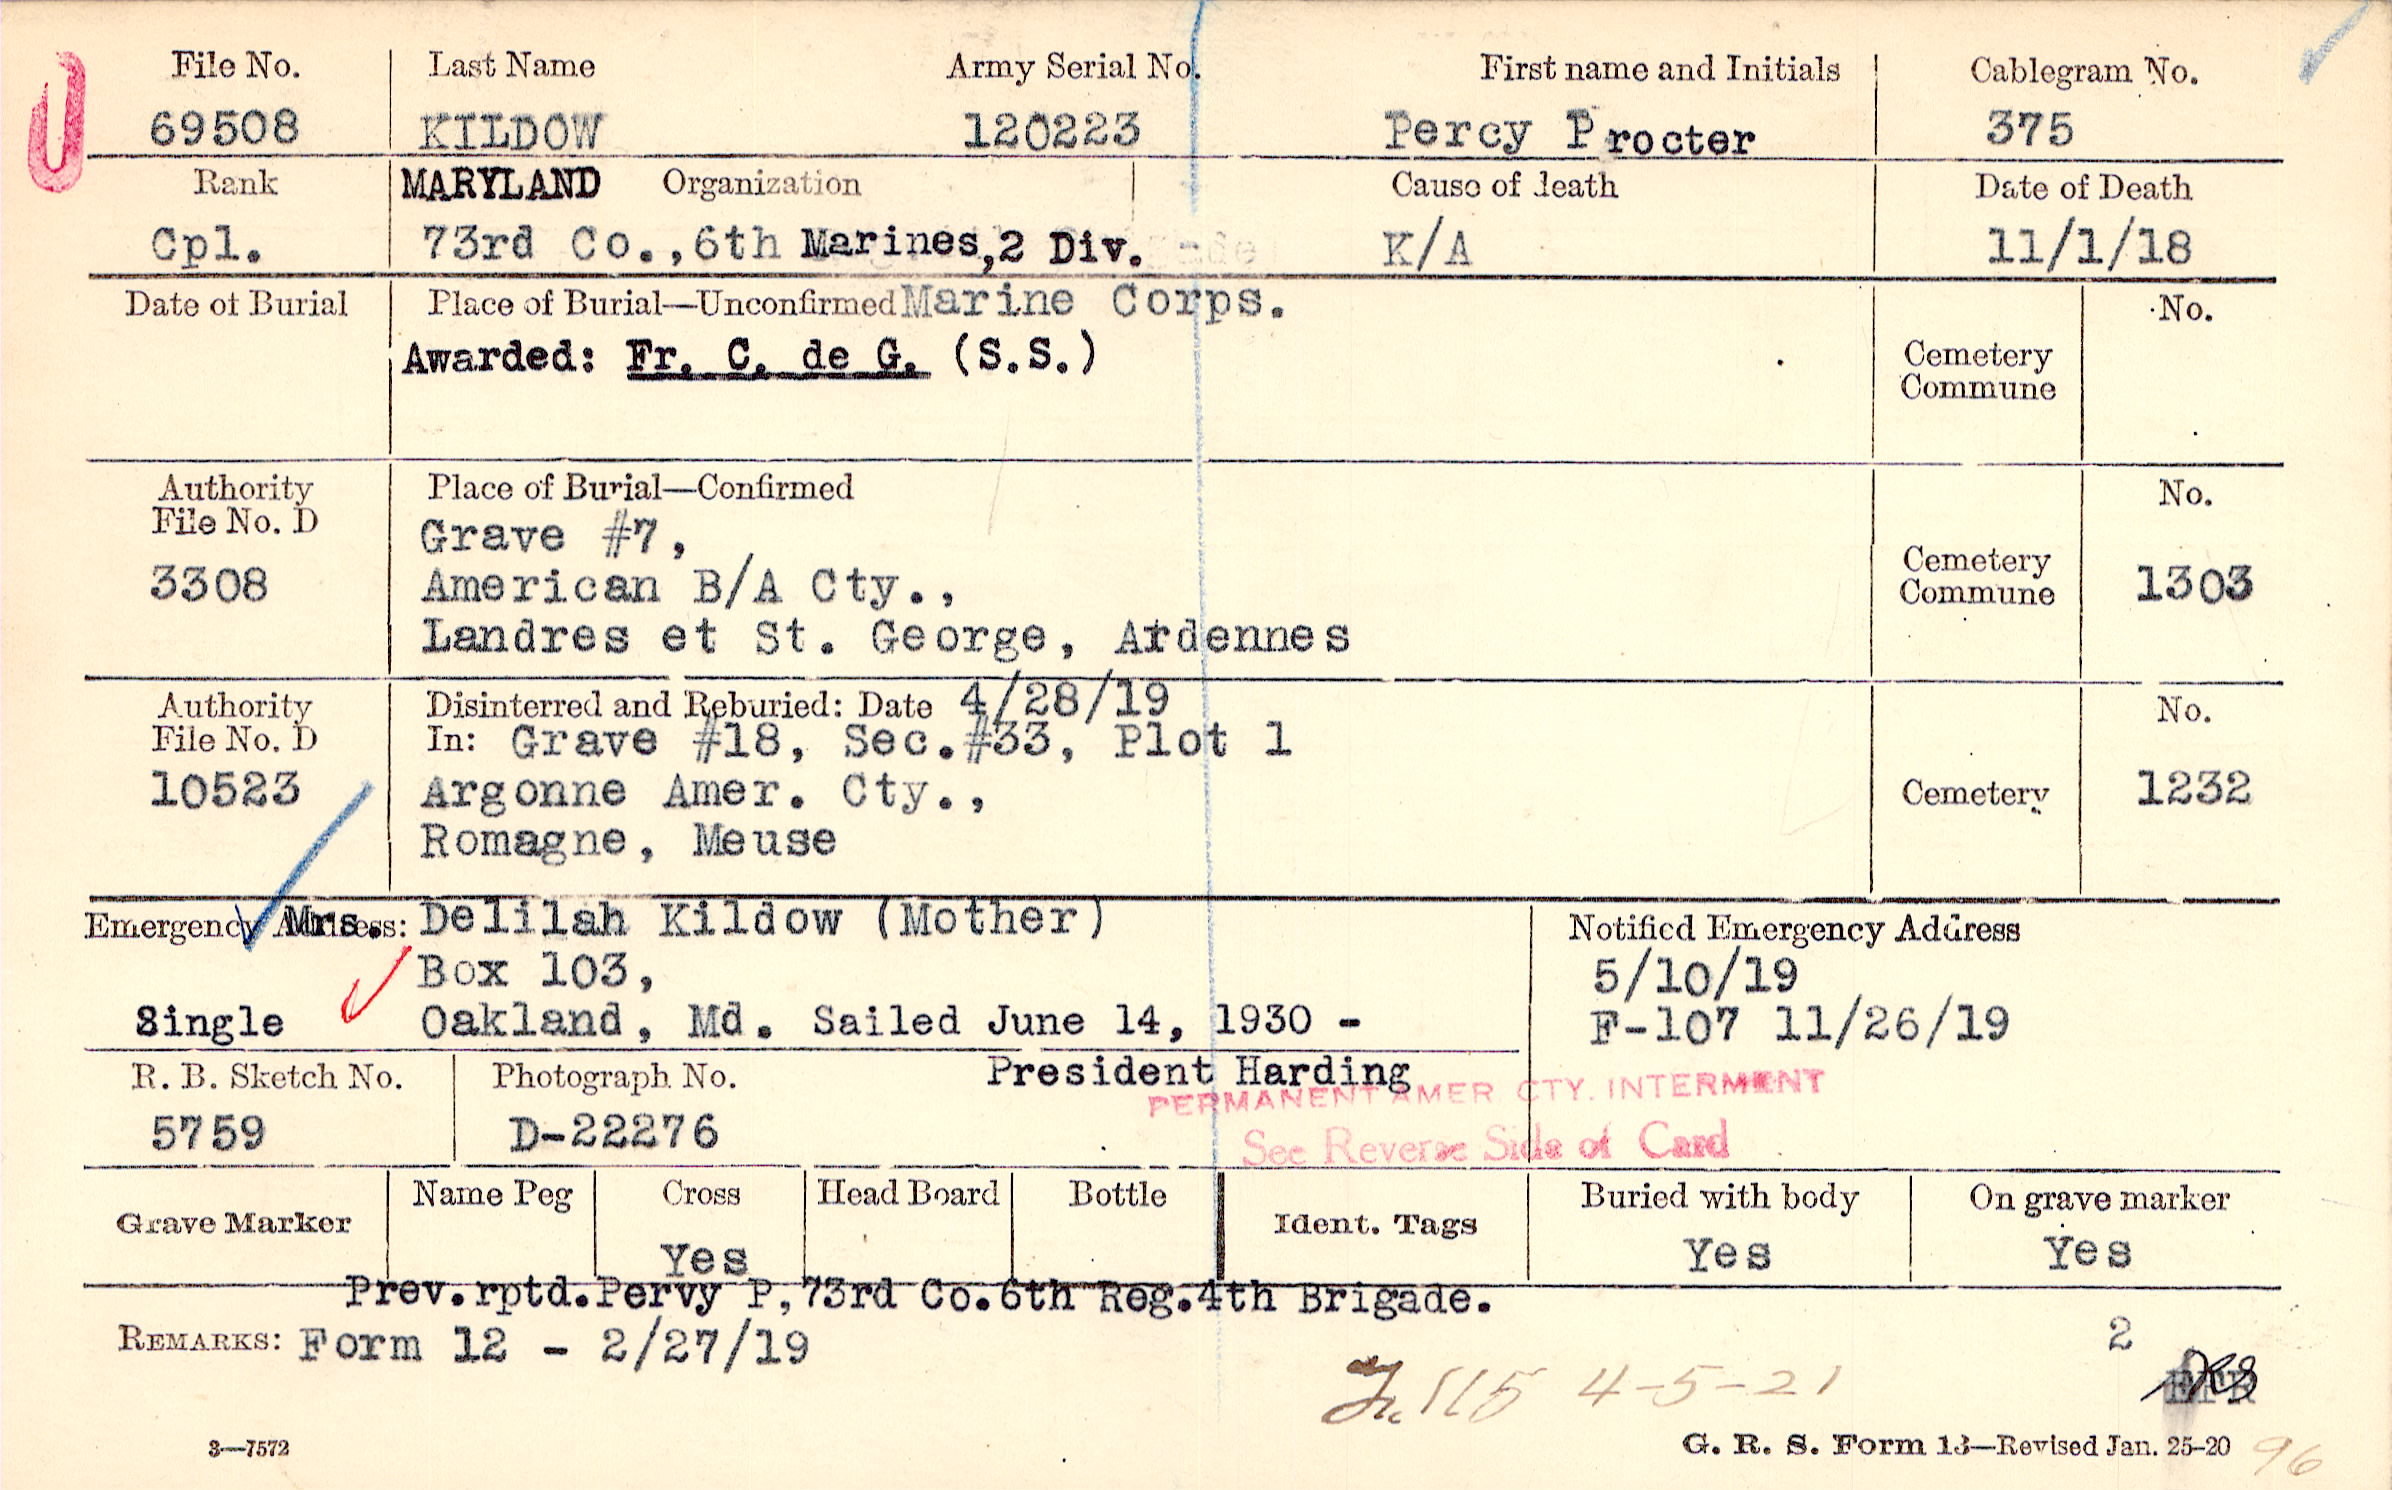 File No. Last Name Army Serial No. First name and Initials Cablegram No.
69508 KILDOW 120223 Percy Procter 375
Rank MARYLAND Organization Cause of death Date of Death
Cpl. 73rd Co., 6th Marines, 2 Div. K/A 11/1/18
Date of Burial Place of Burial—Unconfirmed Marine Corps. No.
Awarded: Fr. C. de G. (S.S.) Cemetery
Commune
Authority Place of Burial—Confirmed No.
File No. D Grave #7,
3308 American B/A Cty., Cemetery Commune 1303
Landres et St. George, Ardennes
Authority Disinterred and Reburied: Date 4/28/19 No.
File No. D In: Grave #18, Sec.#33, Plot 1
10523 Argonne Amer. Cty., Cemetery 1232
Romagne, Meuse
Emergency Address: Mrs. Delilah Kildow (Mother) Notified Emergency Address
Box 103, 5/10/19
Single Oakland, Md. Sailed June 14, 1930 - F-107 11/26/19
R. B. Sketch No. Photograph No. President Harding
PERMANENT AMER CTY. INTERMENT
5759 D-22276 See Reverse Side of Card
Grave Marker Name Peg Cross Head Board Bottle Ident. Tags Buried with body On grave marker
Yes Yes Yes
Prev.rptd.Pervy P,73rd Co.6th Reg.4th Brigade.
REMARKS: Form 12 - 2/27/19 2
115 4-5-21
3—7572 G. R. S. Form 13—Revised Jan. 25-20 96